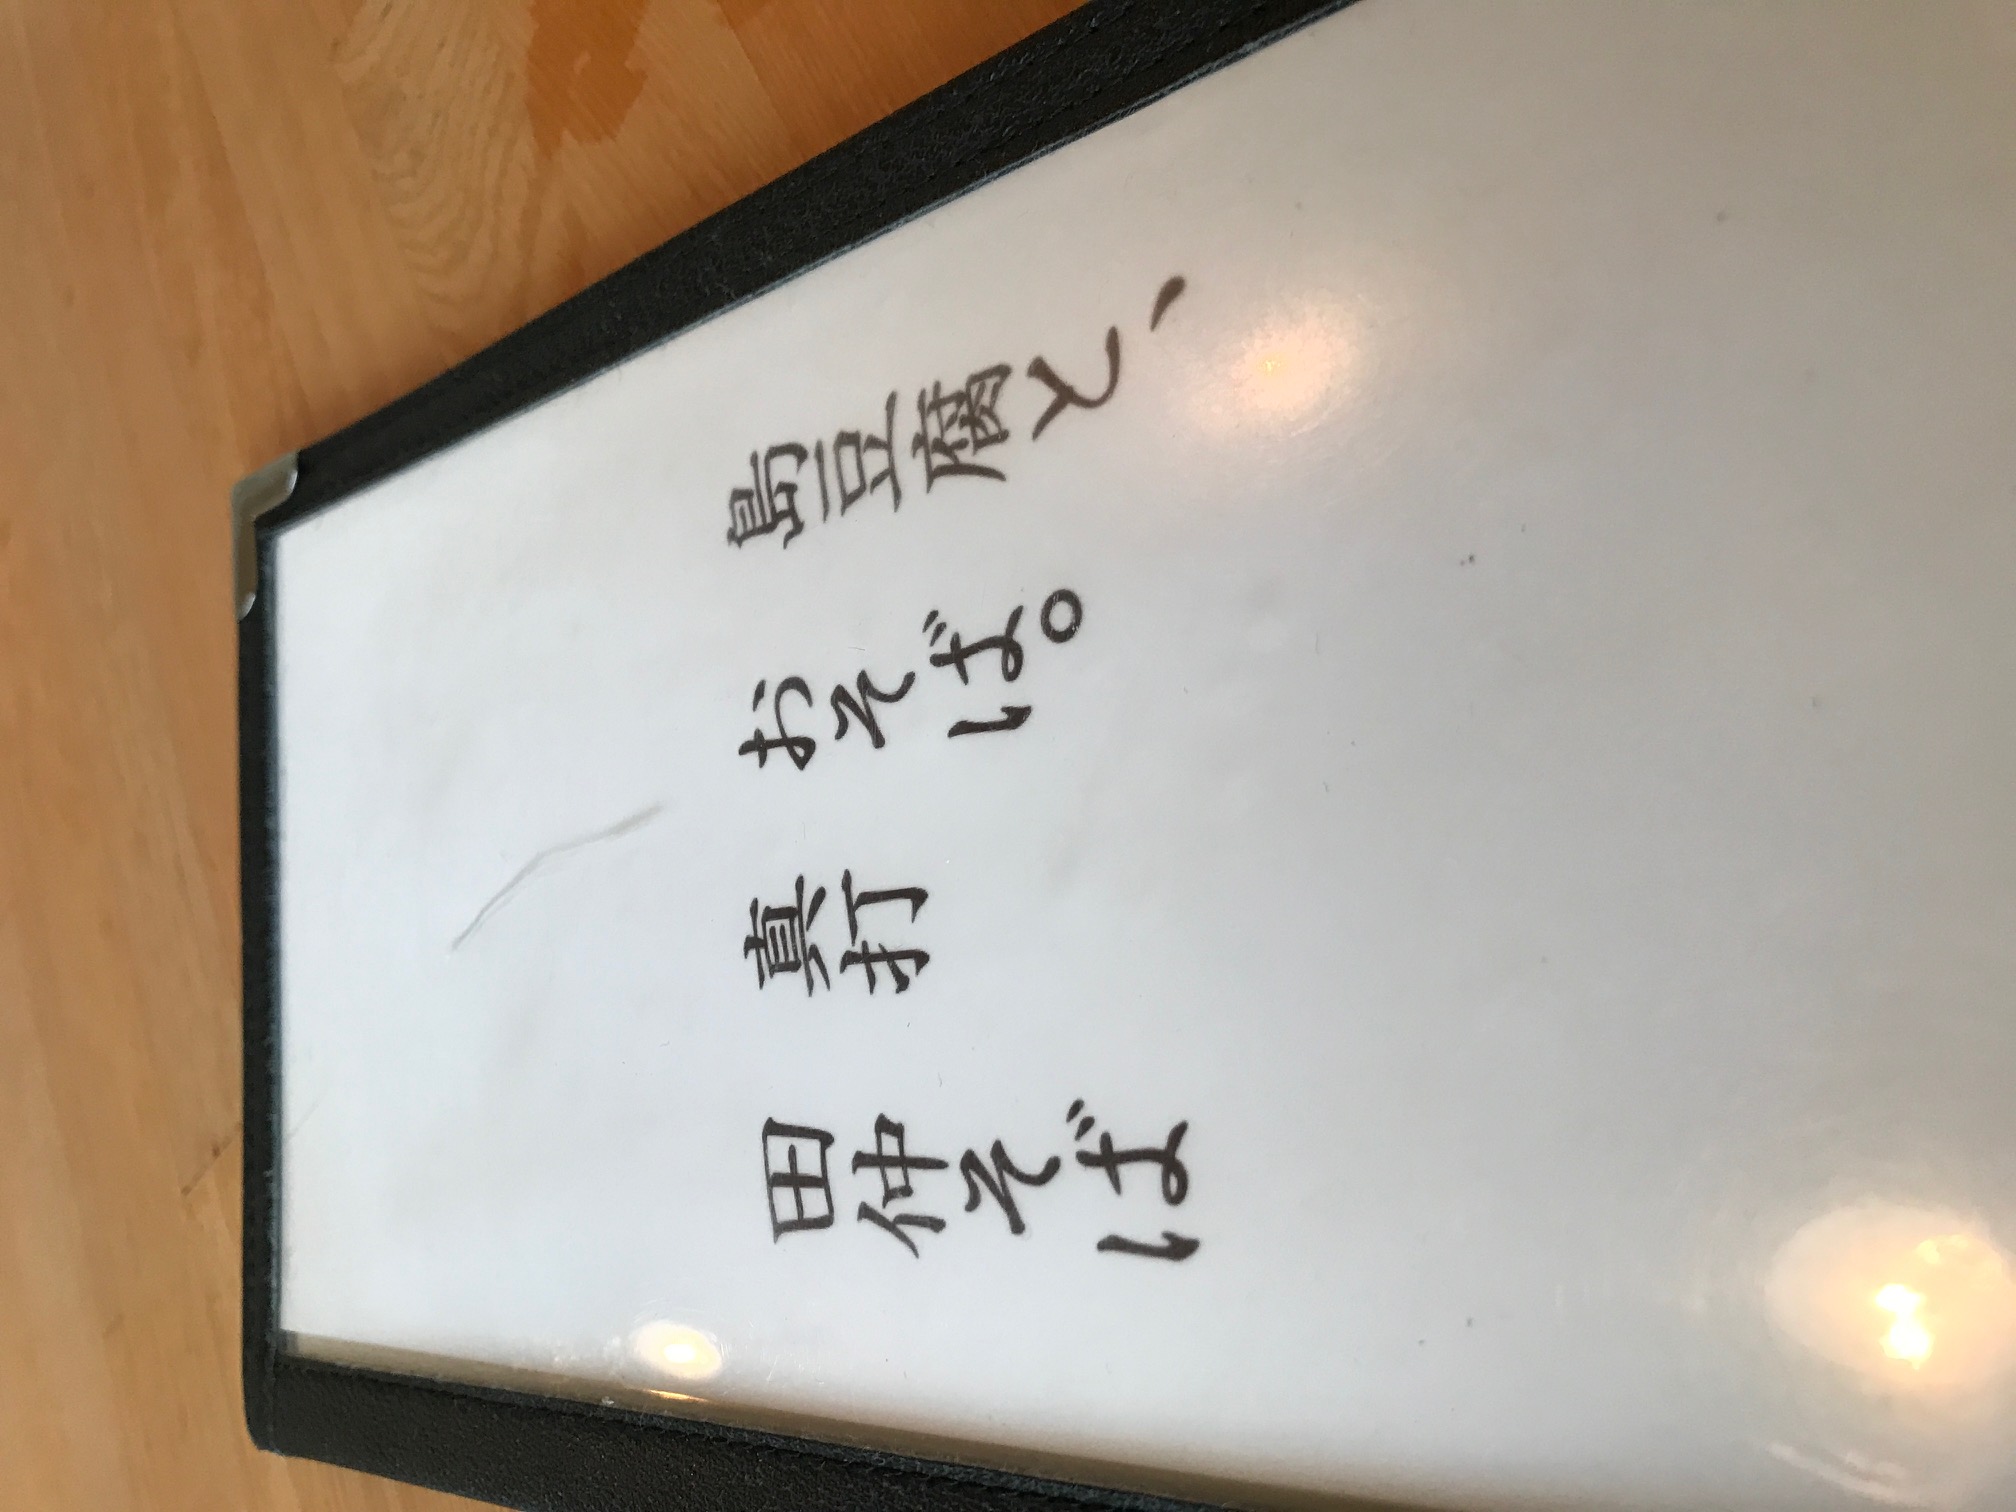 島豆腐と、
おそば。
真打
田仲そば